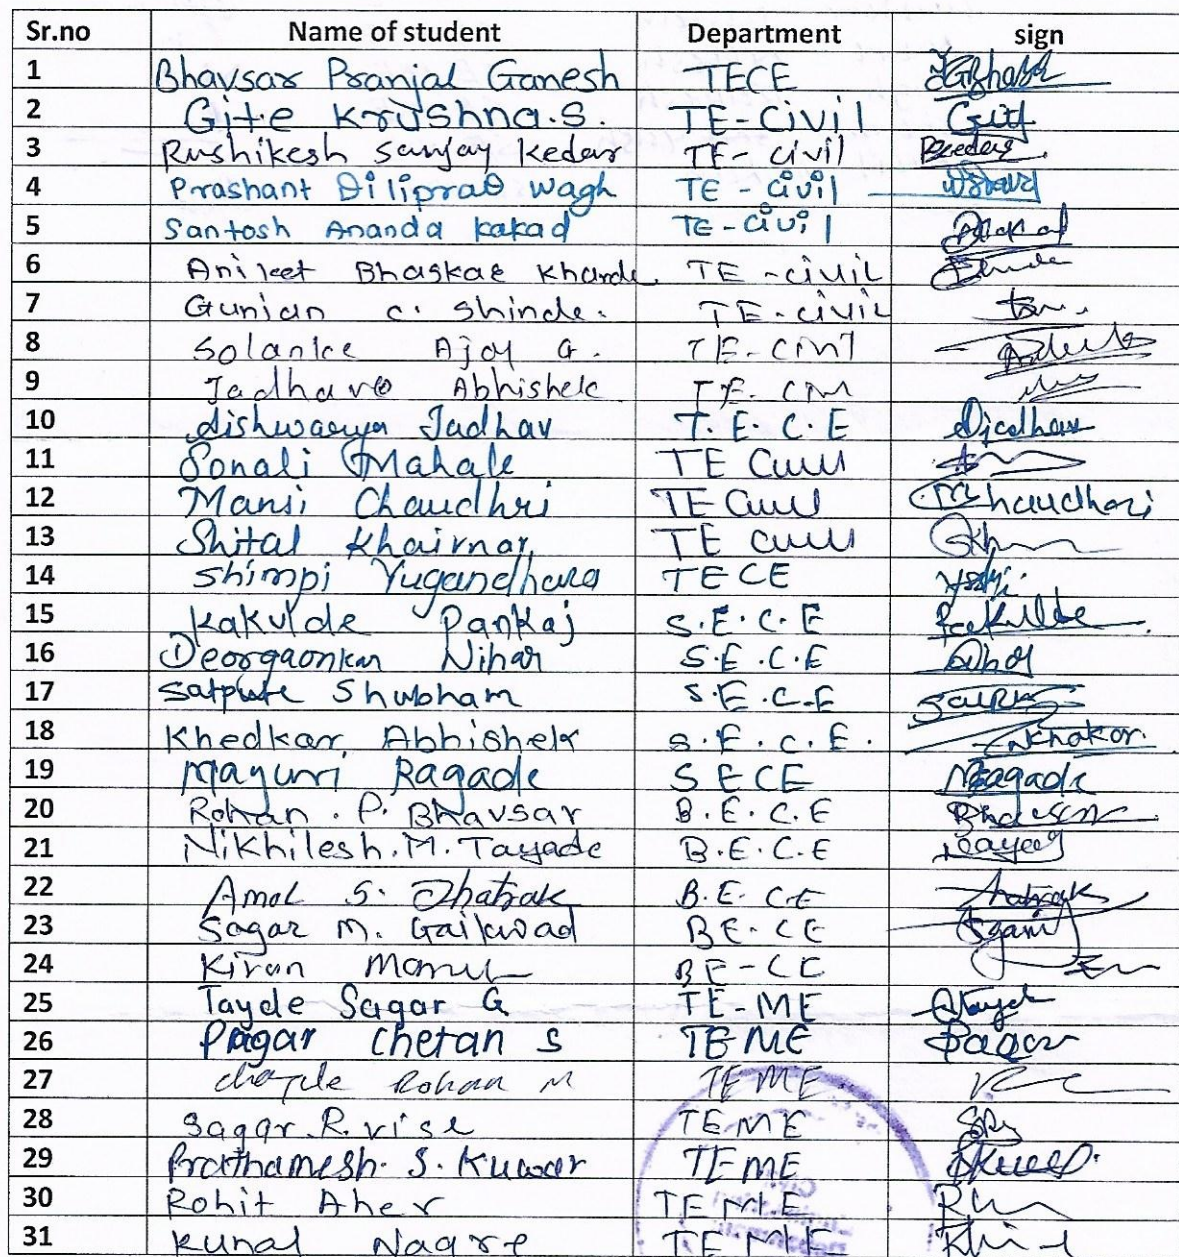 Sr.no Name of student Department sign
1 Bhavsar Pranjal Ganesh TECE
2 Gite Krushna.S. TE-Civil Gite
3 Rushikesh Sanjay Kedar TE-Civil
4 Prashant Diliprao Wagh TE-Civil
5 Santosh Ananda Kakad TE-Civil
6 Aniket Bhaskar Kharde TE-civil
7 Gunjan C. Shinde. TE-civil
8 Solanke Ajay G. TE-Civil
9 Jadhav Abhishek TE-
10 Aishwarya Jadhav T.E.C.E Ajadhav
11 Sonali Mahale TE Civil
12 Mansi Chaudhri TE Civil Chaudhari
13 Shital Khairnar TE Civil
14 Shimpi Yugandhara TECE
15 Kakulde Pankaj S.E.C.E
16 Deorgaonkar Nihar S.E.C.E
17 Satpute Shubham S.E.C.E
18 Khedkar Abhishek S.E.C.E.
19 Mayuri Ragade SECE Ragade
20 Rohan.P.Bhavsar B.E.C.E
21 Nikhilesh.M.Tayade B.E.C.E
22 Amol S. B.E.CE
23 Sagar M. Gaikwad BE.CE
24 Kiran BE-CE
25 Tayde Sagar G TE-ME
26 Pagar Chetan S TEME Pagar
27 Rohan M TEME
28 Sagar.R.vise TEME
29 Prathamesh.S.Kuwar TEME
30 Rohit Aher TEME
31 Kunal Nagre TEME